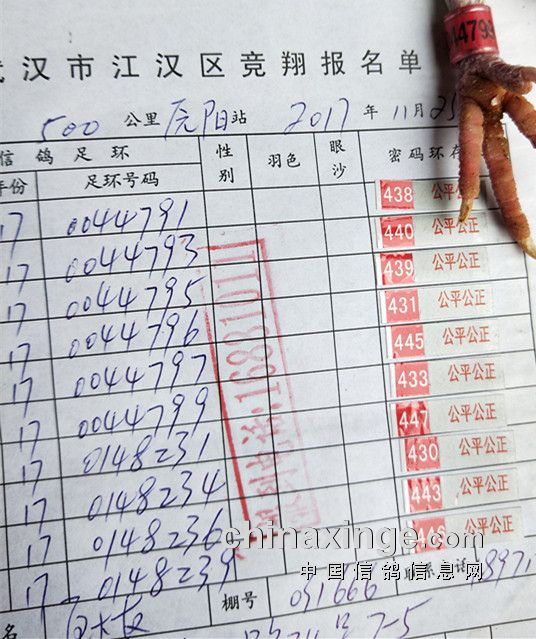 武汉市江汉区竞翔报名单
44799
500 公里 站 2017 年 11 月 25
信鸽足环 性别 羽色 眼沙 密码环存
年份 足环号码
17 0044791 438 公平公正
17 0044793 440 公平公正
17 0044795 439 公平公正
17 0044796 431 公平公正
17 0044797 445 公平公正
17 0044799 433 公平公正
17 0148231 447 公平公正
17 0148234 430 公平公正
17 0148236 443 公平公正
17 0148239 446 公平公正
16881011
chinaxinge.com
中国信鸽信息网
名 棚号 091666 联系电话 8971